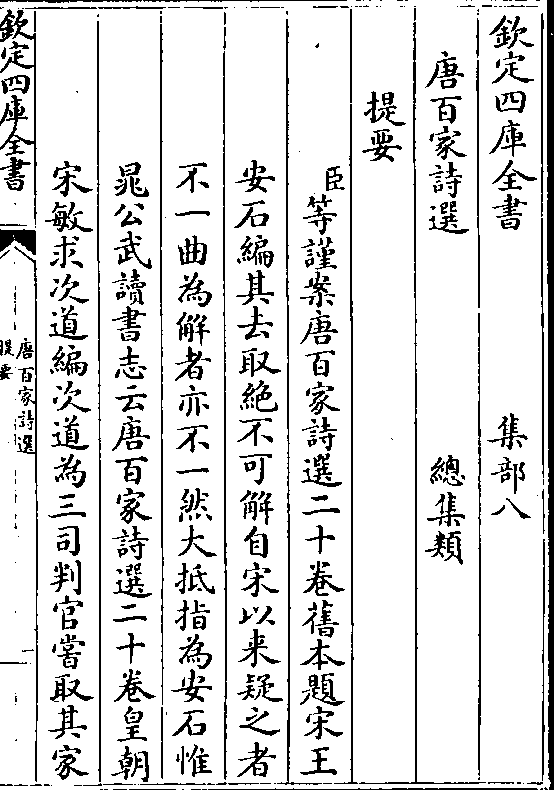 欽定四庫全書　集部八
唐百家詩選　總集類
提要
臣等謹案唐百家詩選二十卷舊本題宋王
安石編其去取絶不可解自宋以来疑之者
不一曲為解者亦不一然大抵指為安石惟
晁公武讀書志云唐百家詩選二十卷皇朝
宋敏求次道編次道為三司判官嘗取其家
欽定四庫全書
唐百家詩選
提要